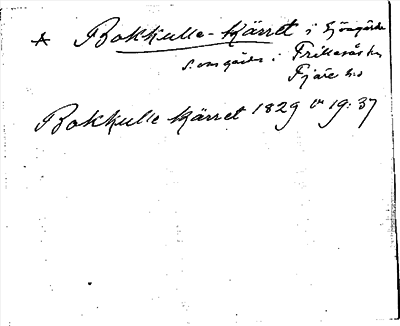 * Bokkulle-Kärret i Sjögärde
s. om gården i Frillesås sn
Fjäre hd
Bokkulle Kärret 1829 lm 19:37